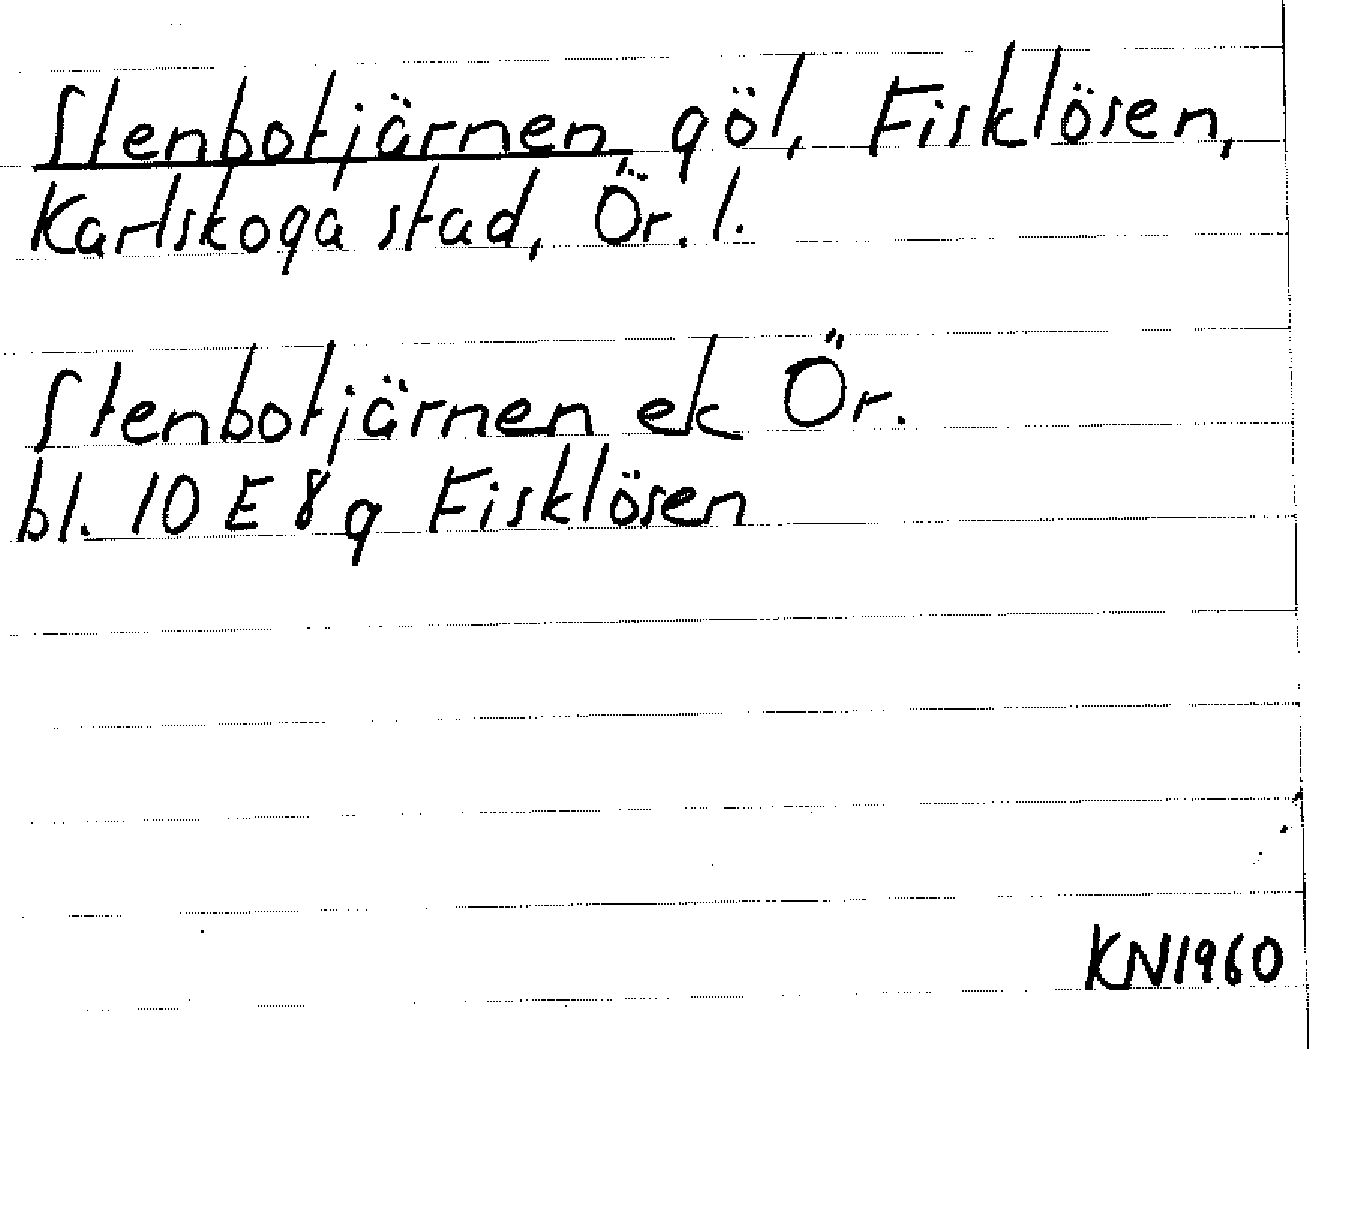 Stenbotjärnen, göl, Fisklösen,
Karlskoga stad, Ör. l.
Stenbotjärnen ek Ör.
bl. 10 E 8 g Fisklösen
KN1960